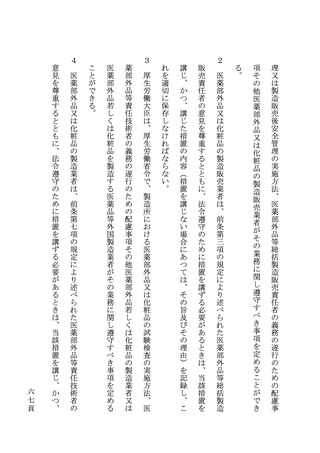 理又は製造販売後安全管理の実施方法、医薬部外品等総括製造販売責任者の義務の遂行のための配慮事
項その他医薬部外品又は化粧品の製造販売業者がその業務に関し遵守すべき事項を定めることができ
る。
２　医薬部外品又は化粧品の製造販売業者は、前条第三項の規定により述べられた医薬部外品等総括製造
販売責任者の意見を尊重するとともに、法令遵守のために措置を講ずる必要があるときは、当該措置を
講じ、かつ、講じた措置の内容（措置を講じない場合にあつては、その旨及びその理由）を記録し、こ
れを適切に保存しなければならない。
３　厚生労働大臣は、厚生労働省令で、製造所における医薬部外品又は化粧品の試験検査の実施方法、医
薬部外品等責任技術者の義務の遂行のための配慮事項その他医薬部外品若しくは化粧品の製造業者又は
医薬部外品若しくは化粧品を製造する医薬品等外国製造業者がその業務に関し遵守すべき事項を定める
ことができる。
４　医薬部外品又は化粧品の製造業者は、前条第七項の規定により述べられた医薬部外品等責任技術者の
意見を尊重するとともに、法令遵守のために措置を講ずる必要があるときは、当該措置を講じ、かつ、
六七頁